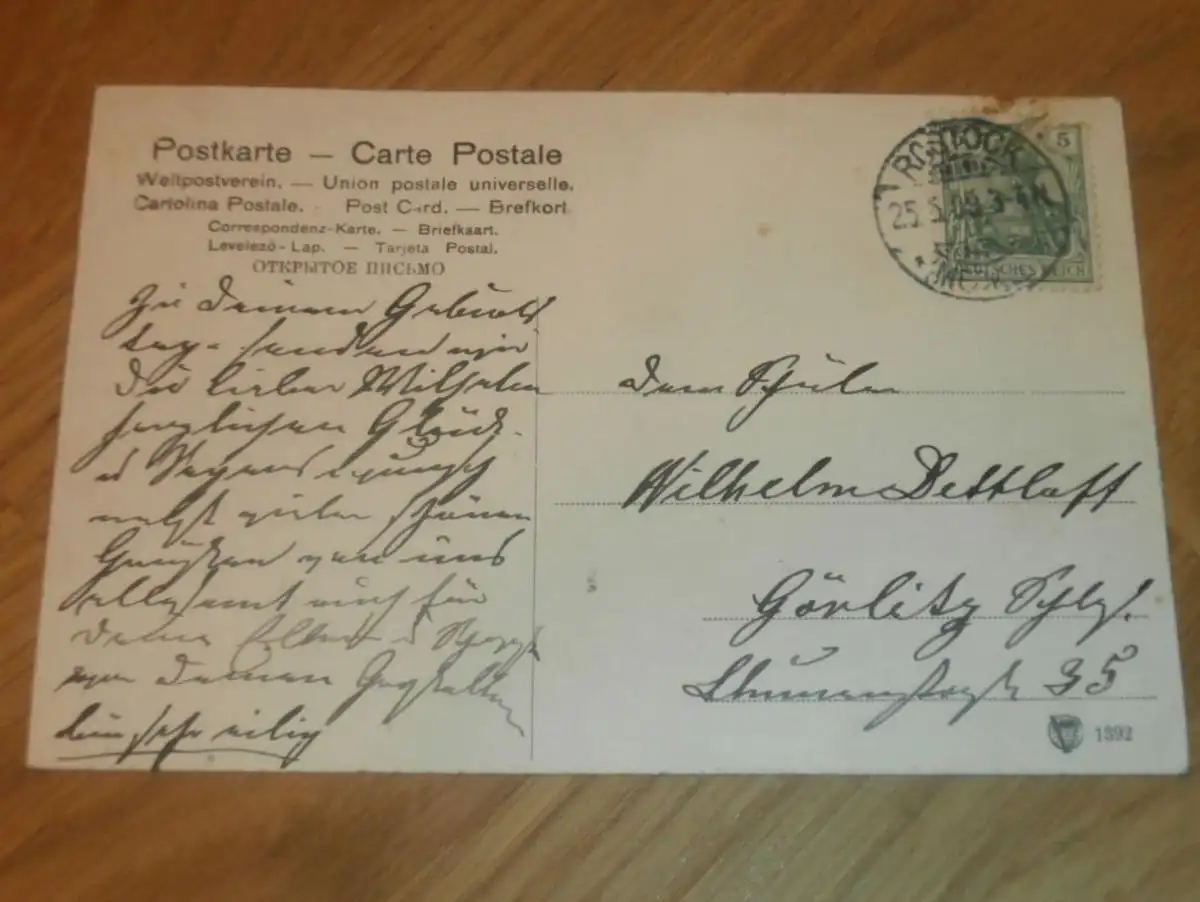 Postkarte — Carte Postale
Weltpostverein. — Union postale universelle.
Cartolina Postale. Post Card. — Brefkort
Correspondenz-Karte. — Briefkaart.
Levelező-Lap. — Tarjeta Postal.
ОТКРЫТОЕ ПИСЬМО
ROSTOCK
25.5.09.3-4N
5
DEUTSCHES REICH
Zu Deinem Geburts
tage senden wir
Dir lieber Wilhelm
herzlichen Glück-
u Segenswunsch
nebst vielen schönen
Grüßen von uns
allesamt auch für
Deine Eltern u
von Deinen
sehr eilig
Dem Schüler
Wilhelm Dettlaff
Görlitz Schles.
35
1392